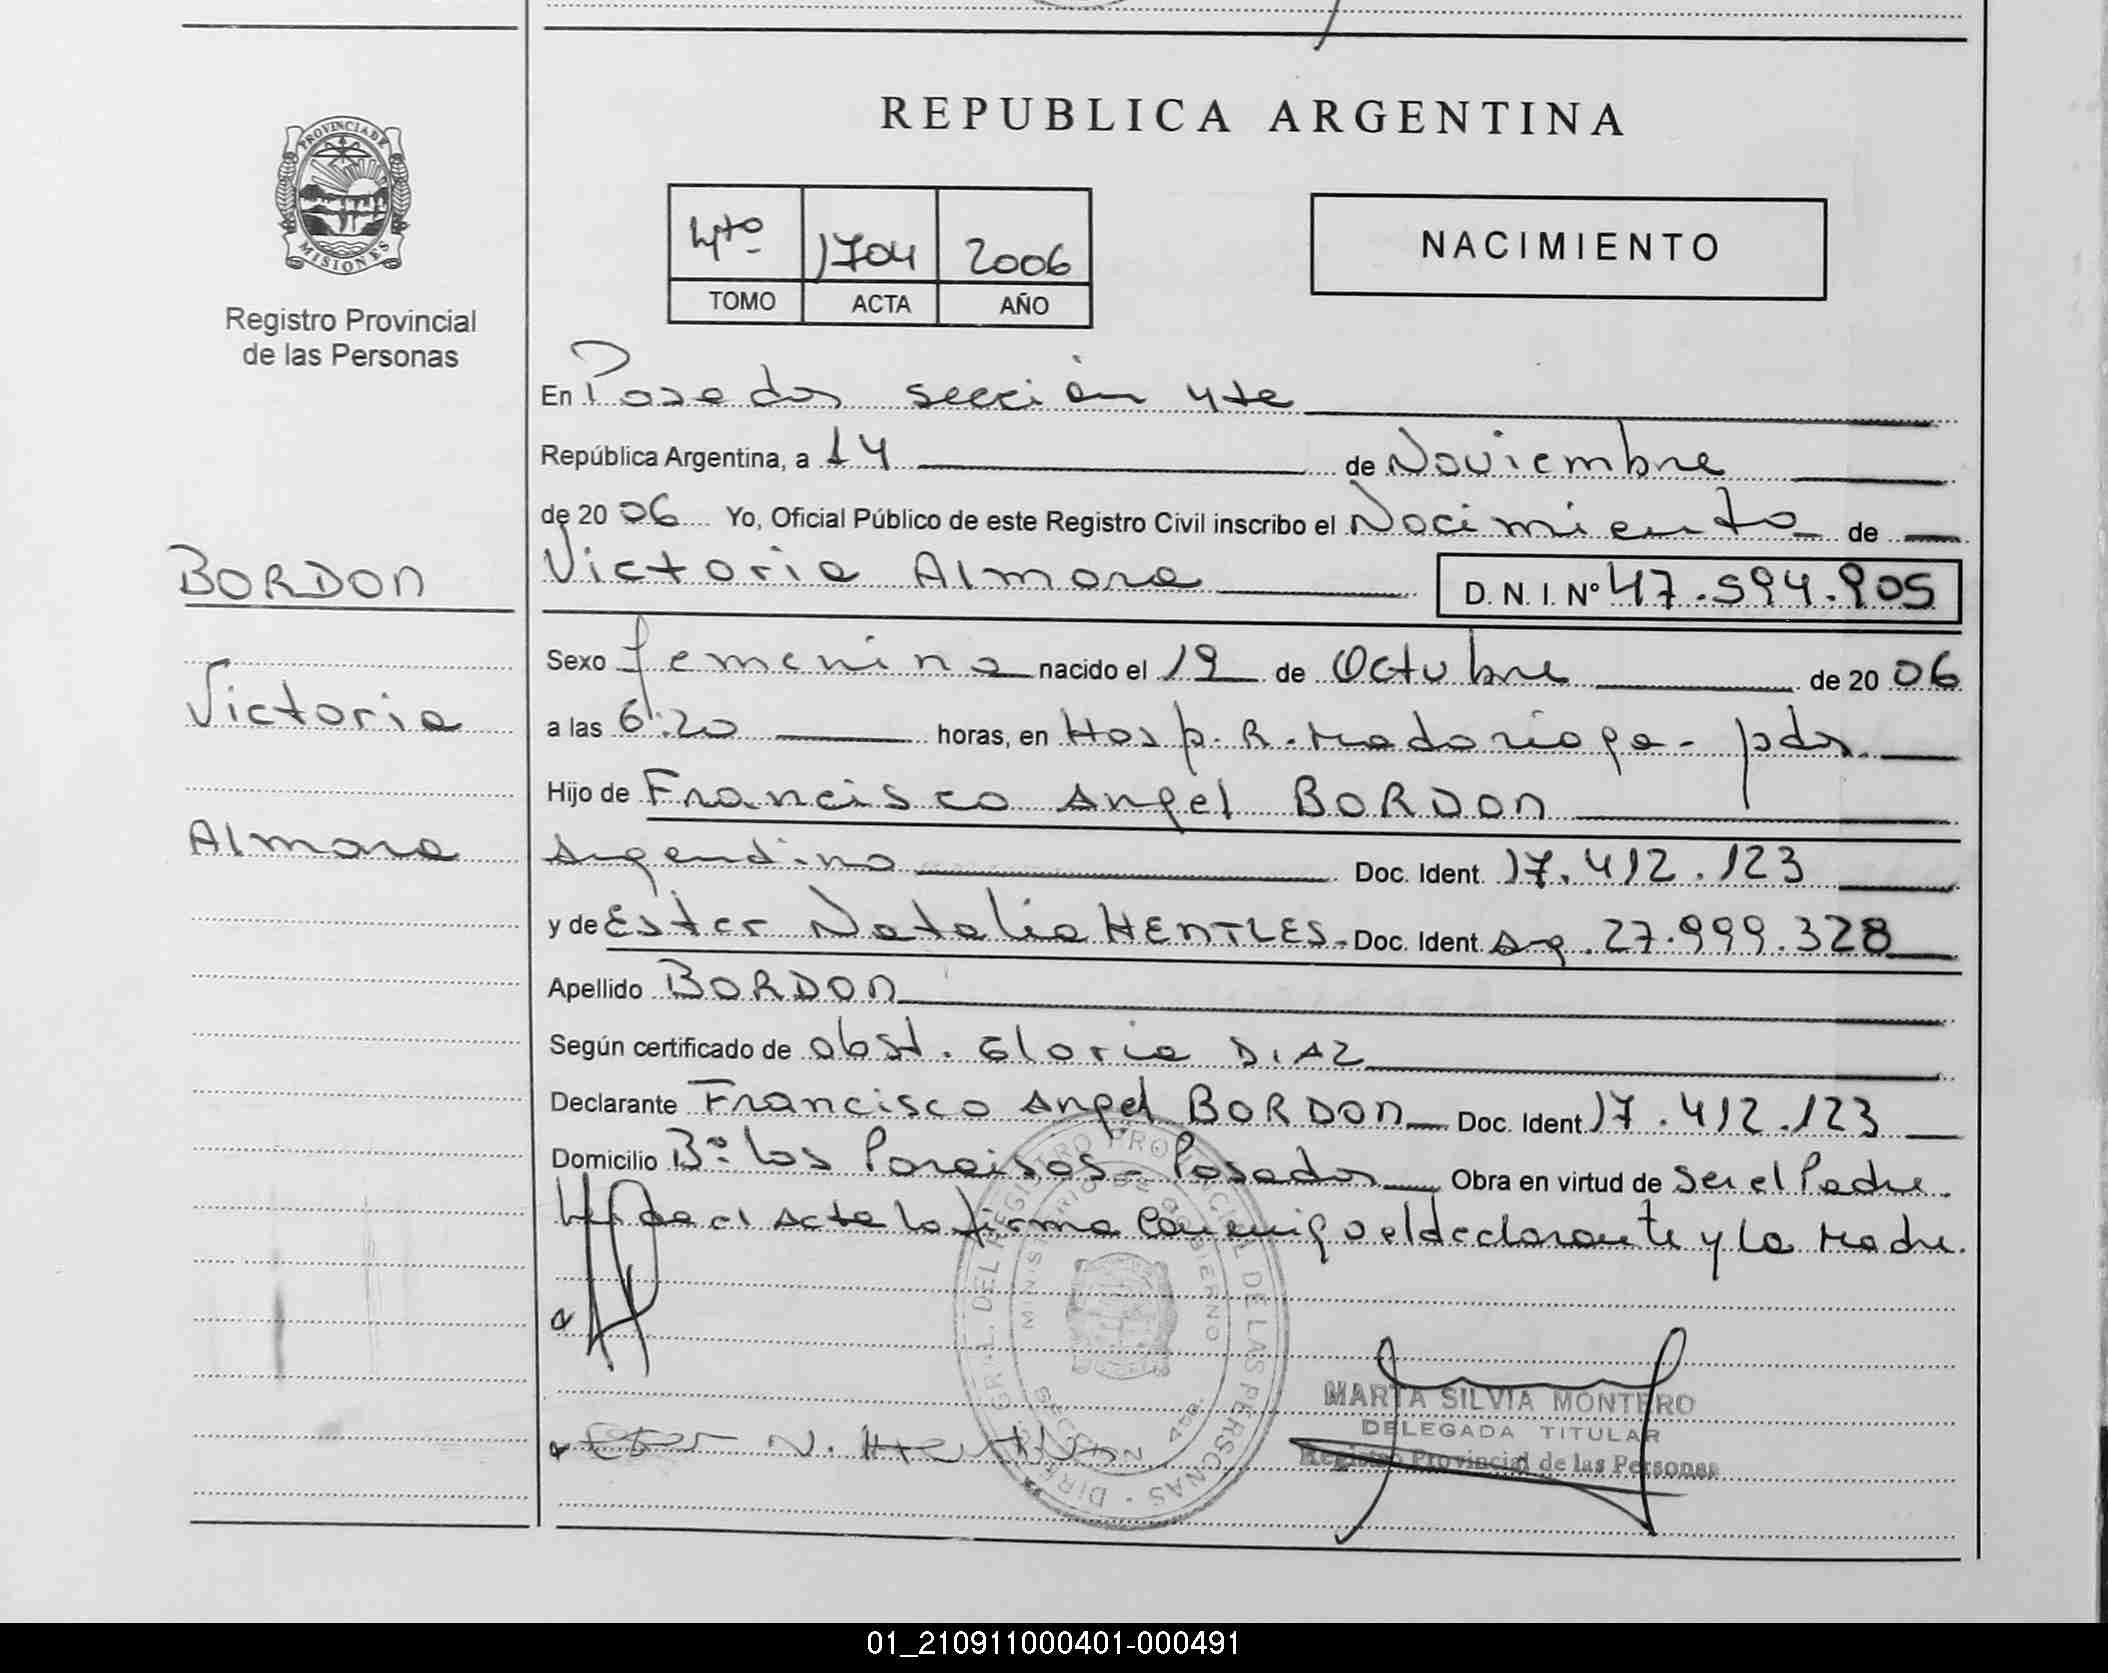 REPUBLICA ARGENTINA
PROVINCIA DE
MISIONES
Registro Provincial
de las Personas
4to 1704 2006
TOMO ACTA AÑO
NACIMIENTO
En Posadas sección 4ta
República Argentina, a 14 de Noviembre
de 2006 Yo, Oficial Público de este Registro Civil inscribo el Nacimiento de
BORDON
Victoria
Almara
Victoria Almara D. N. I. Nº 47.594.905
Sexo femenino nacido el 19 de Octubre de 2006
a las 6:20 horas, en Hosp. R. Madariaga - pdas.
Hijo de Francisco Angel BORDON
Argentino Doc. Ident. 17.412.123
y de Ester Natalia HENTLES - Doc. Ident. Arg. 27.999.328
Apellido BORDON
Según certificado de obst. Gloria DIAZ
Declarante Francisco Angel BORDON Doc. Ident 17.412.123
Domicilio Bº Los Paraisos - Posadas Obra en virtud de ser el Padre.
Leida el Acta la firma Conmigo el declarante y la Madre.
DIREC. GRAL. DEL REGISTRO PROVINCIAL DE LAS PERSONAS
MINISTERIO DE GOBIERNO
SECCION 4ta.
MARTA SILVIA MONTERO
DELEGADA TITULAR
Registro Provincial de las Personas
Ester N.
01_210911000401-000491